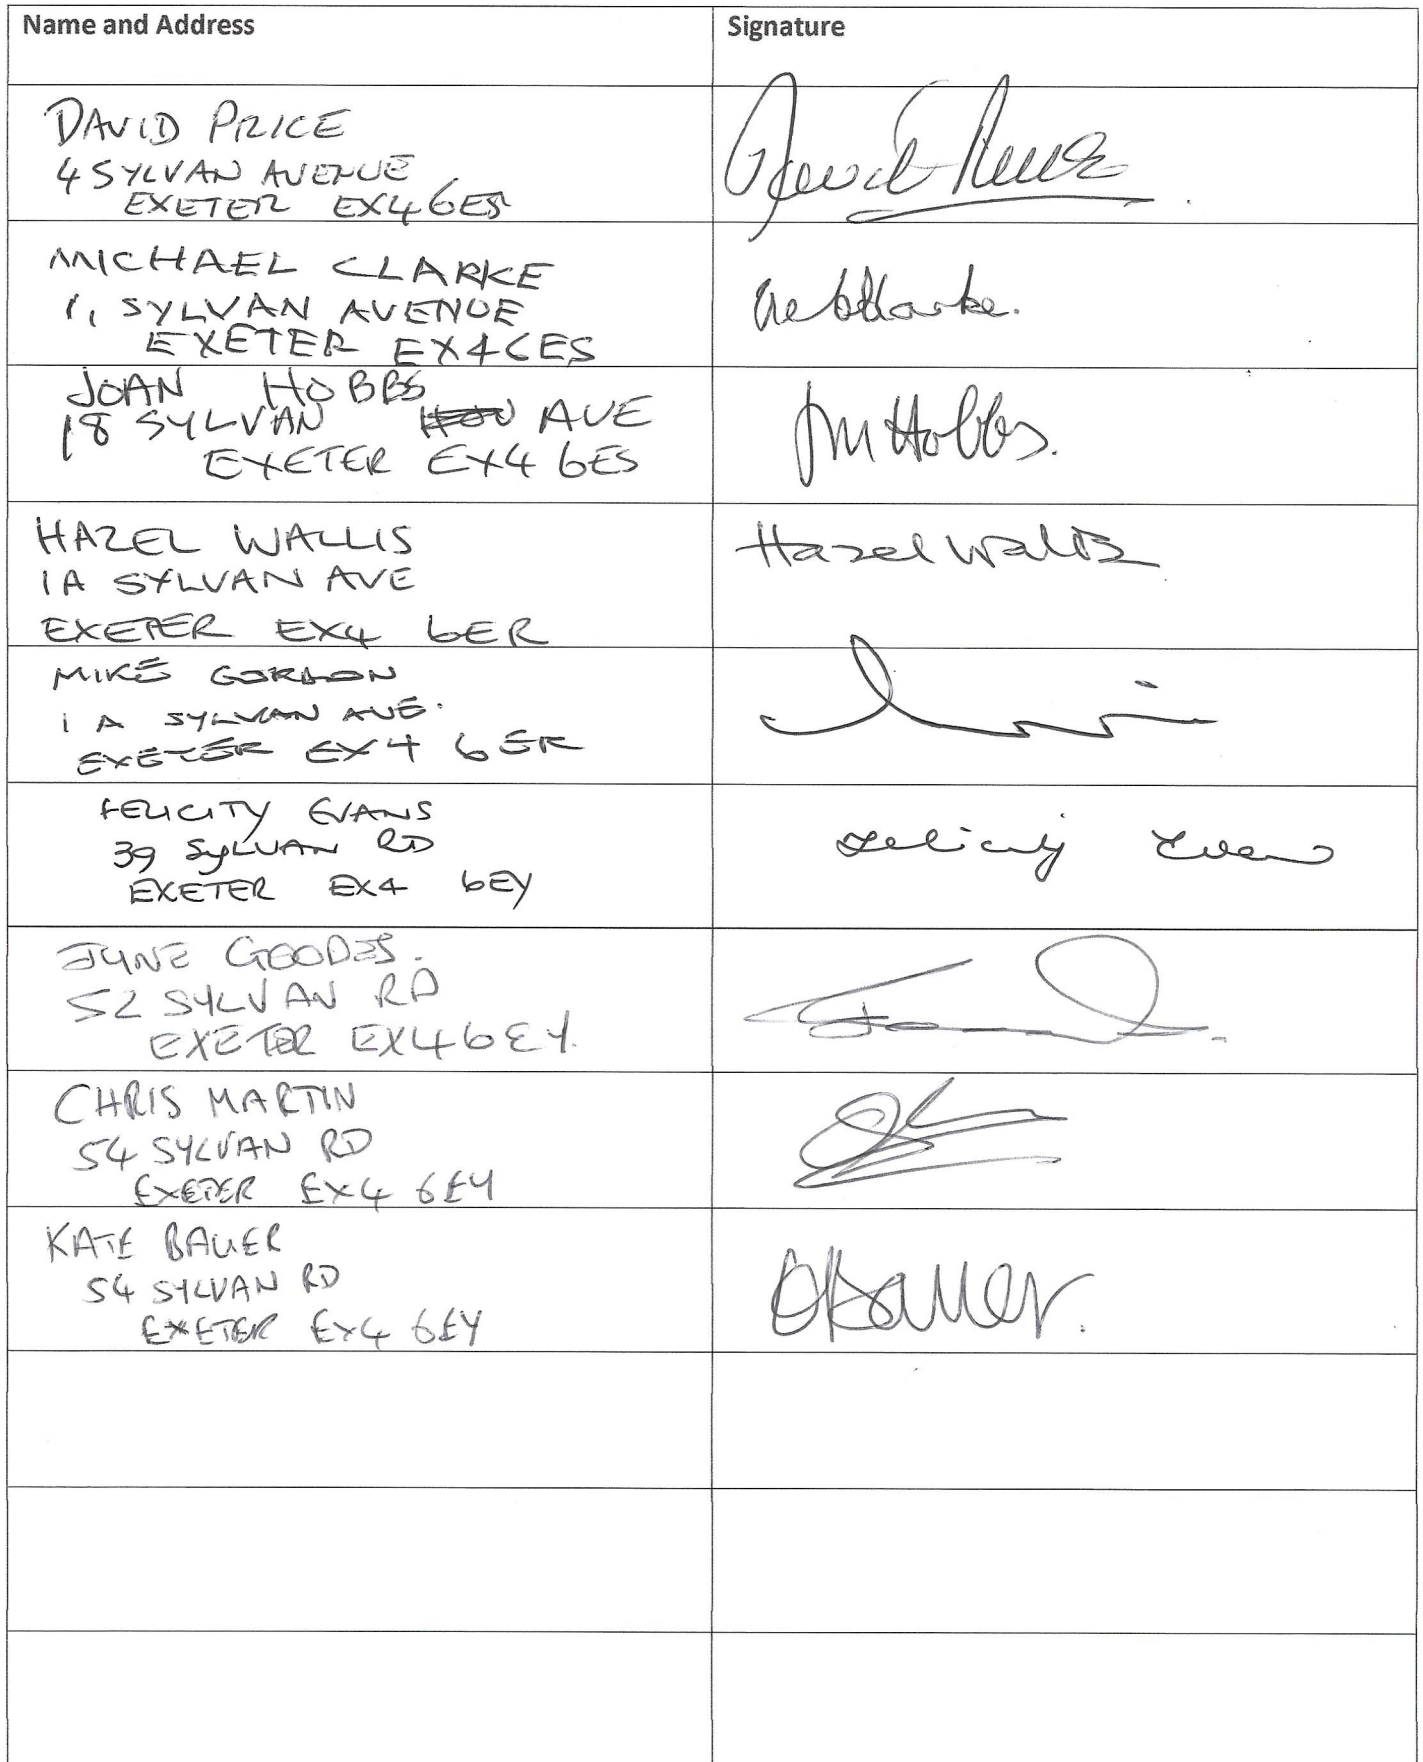 Name and Address
Signature
DAVID PRICE
4 SYLVAN AVENUE
EXETER EX4 6ES
MICHAEL CLARKE
1, SYLVAN AVENUE
EXETER EX4 6ES
JOAN HOBBS
18 SYLVAN AVE
EXETER EX4 6ES
JM Hobbs.
HAZEL WALLIS
1A SYLVAN AVE
EXETER EX4 6ER
Hazel Wallis
MIKE GORDON
1 A SYLVAN AVE.
EXETER EX4 6ER
FELICITY EVANS
39 SYLVAN RD
EXETER EX4 6EY
Felicity Evans
JUNE GOODES.
52 SYLVAN RD
EXETER EX4 6EY.
CHRIS MARTIN
54 SYLVAN RD
EXETER EX4 6EY
KATE BAUER
54 SYLVAN RD
EXETER EX4 6EY